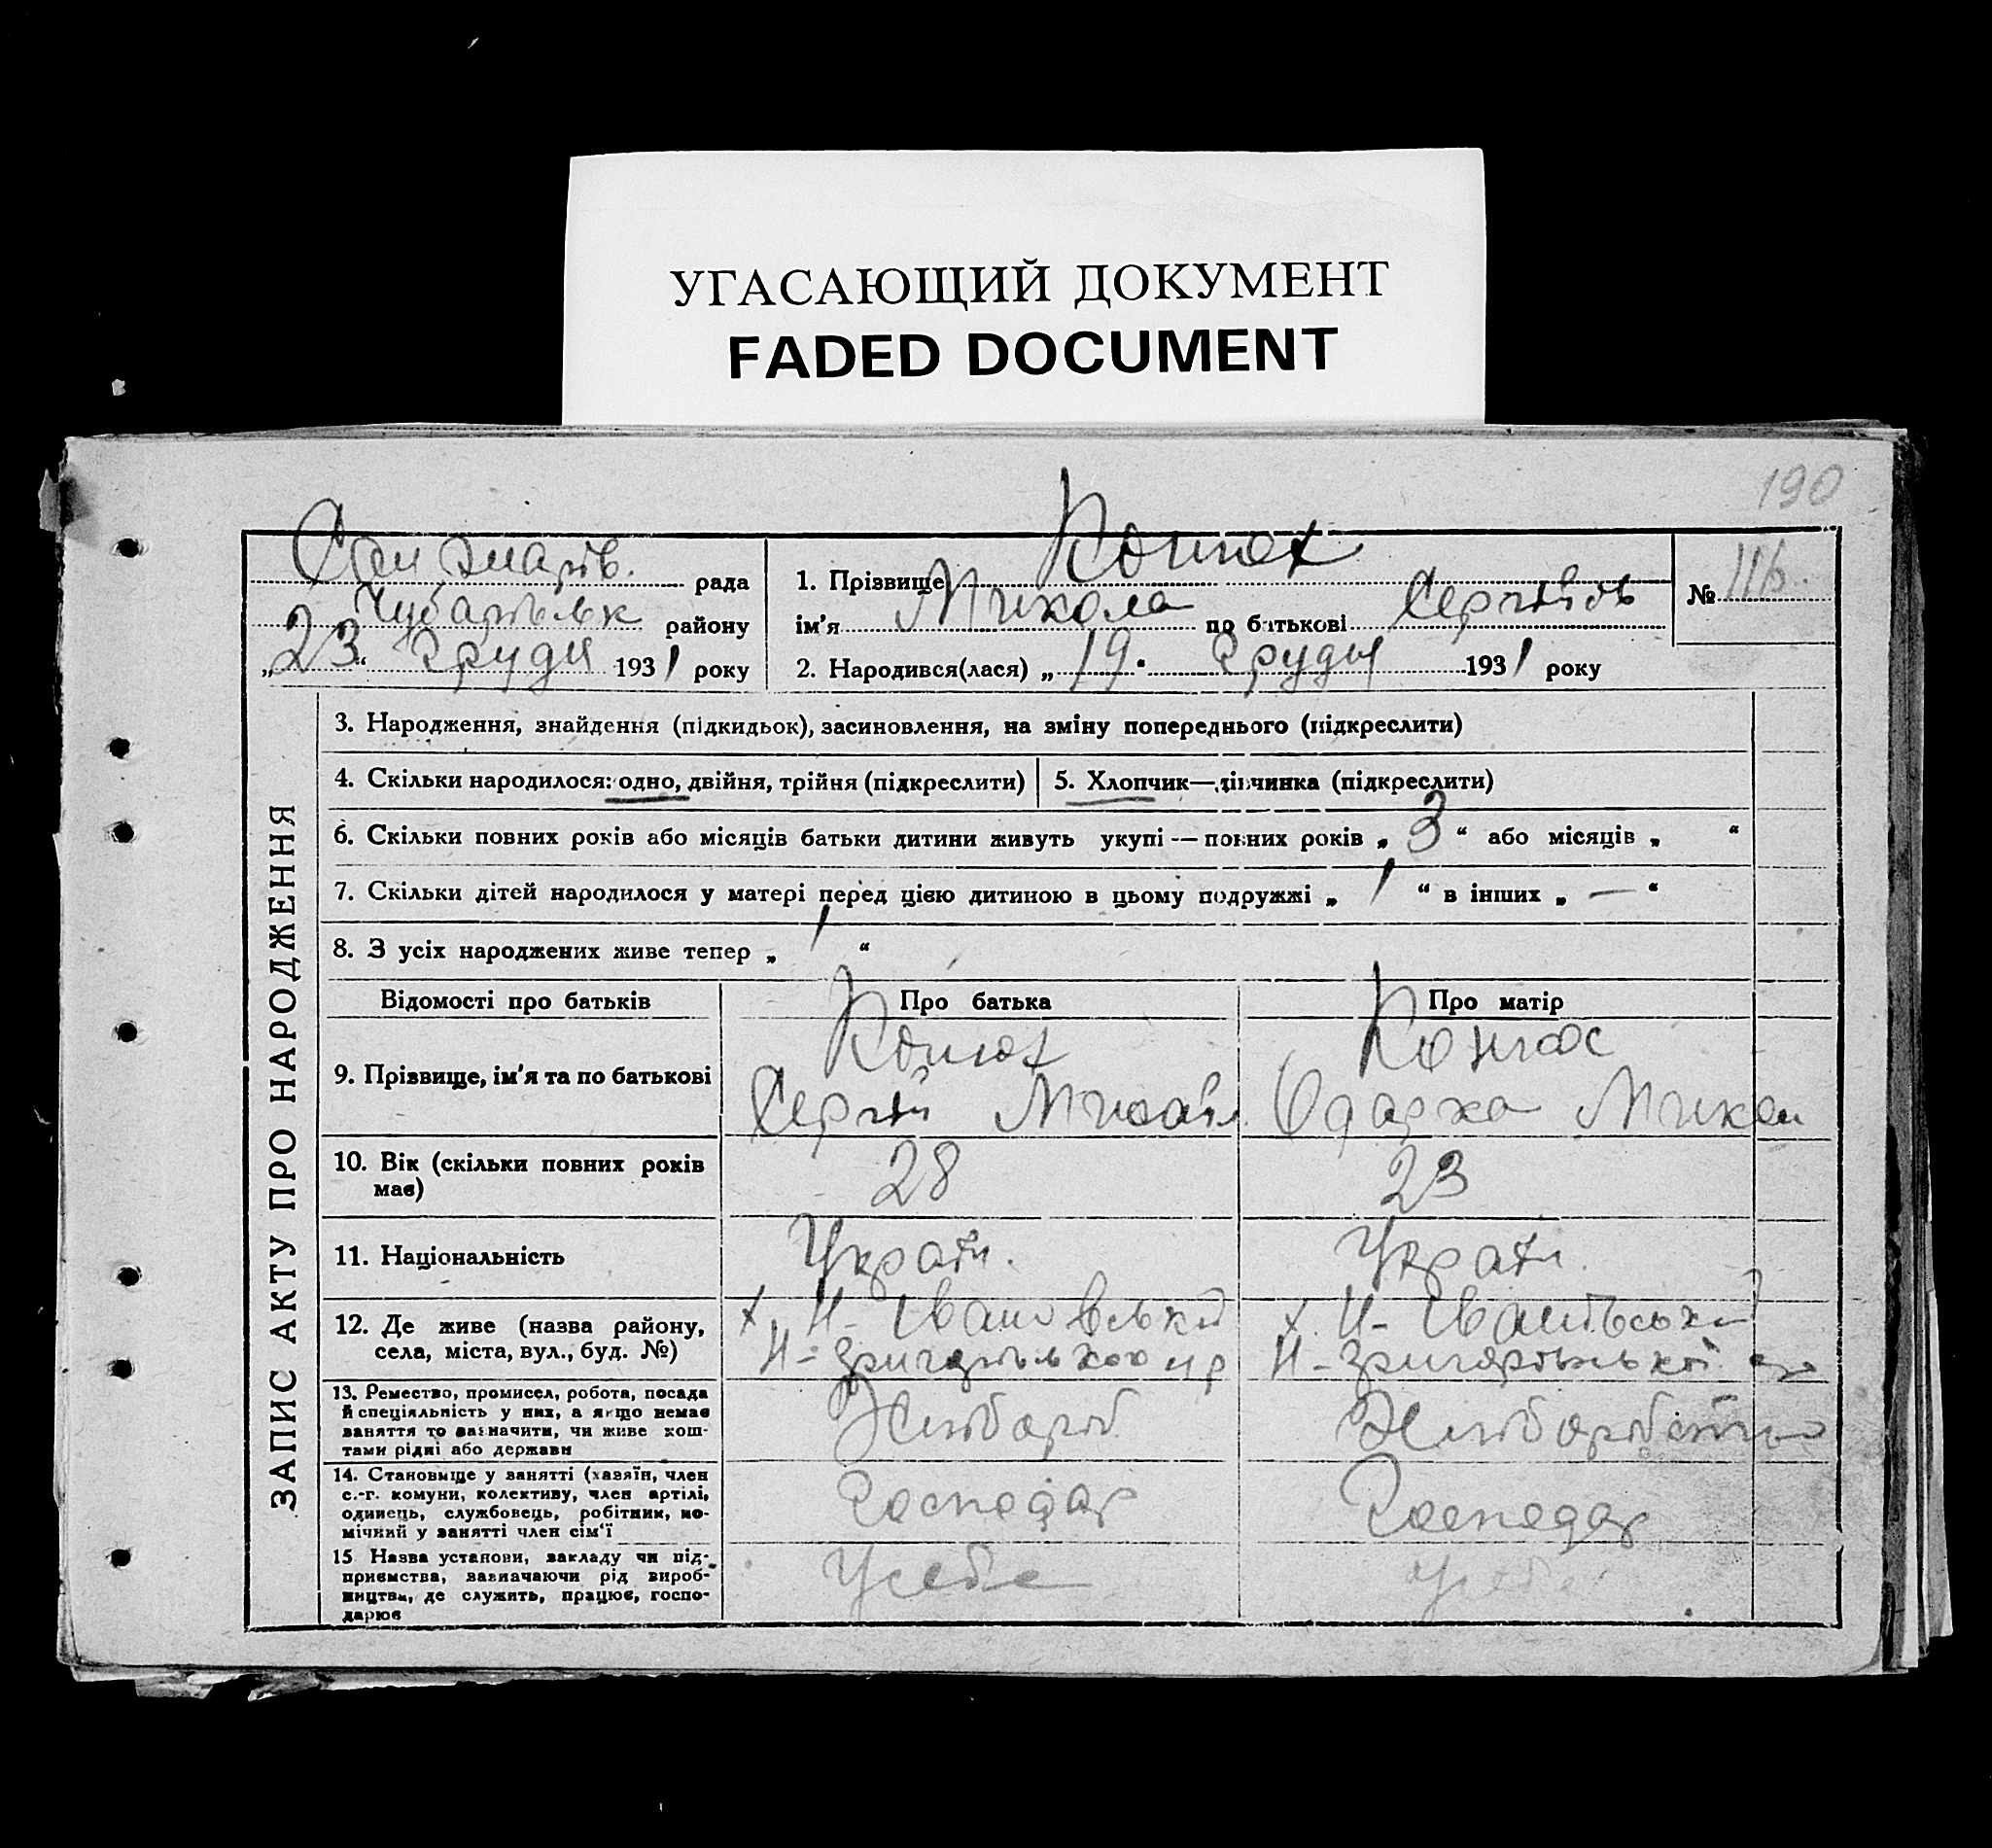 УГАСАЮЩИЙ ДОКУМЕНТ
FADED DOCUMENT
190
рада
району
„23“ Грудн 1931 року
1. Прізвище
ім'я Микола по батькові Сергійов
2. Народився(лася) „19. Грудн 1931 року
№ 116.
ЗАПИС АКТУ ПРО НАРОДЖЕННЯ
3. Народження, знайдення (підкидьок), засиновлення, на зміну попереднього (підкреслити)
4. Скільки народилося: одно, двійня, трійня (підкреслити)
5. Хлопчик—дівчинка (підкреслити)
6. Скільки повних років або місяців батьки дитини живуть укупі — повних років „3“ або місяців „ “
7. Скільки дітей народилося у матері перед цією дитиною в цьому подружжі „1“ в інших „—“
8. З усіх народжених живе тепер „1“
Відомості про батьків
Про батька
Про матір
9. Прізвище, ім'я та по батькові
Сергій Михайл
Одарка Микол
10. Вік (скільки повних років
має)
28
23
11. Національність
Україн.
Україн.
12. Де живе (назва району,
села, міста, вул., буд. №)
х. Н-Івановський
х. Н-Івановський
13. Ремество, промисел, робота, посада
й спеціяльність у них, а якщо немає
заняття то зазначити, чи живе кош-
тами рідні або держави
Хлібороб
14. Становище у занятті (хазяїн, член
с.-г. комуни, колективу, член артілі,
одинець, службовець, робітник, по-
мічний у занятті член сім'ї
Господар
Господар
15 Назва установи, закладу чи під-
приємства, зазначаючи рід вироб-
ництва, де служить, працює, госпо-
дарює
У себе
У себе